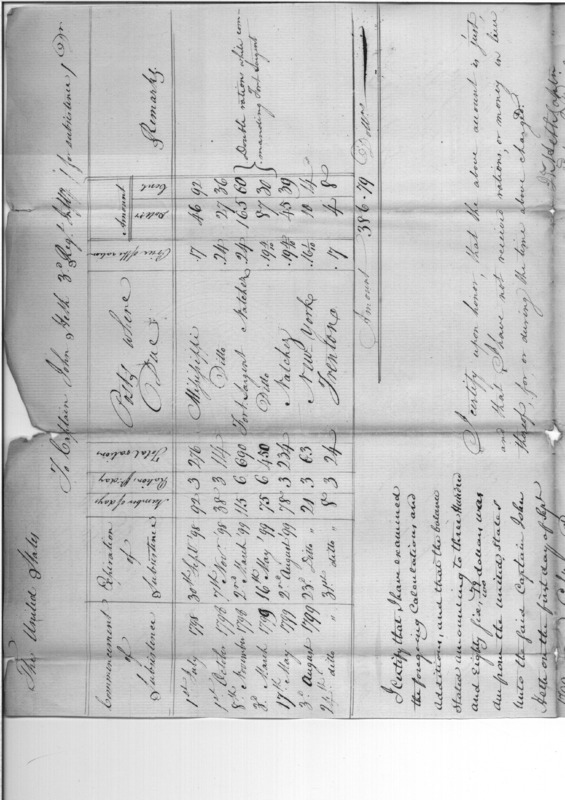 The United States
To Captain John Heth 3d Regt Infty for subsistence Dr
Commencement of Subsistence | Expiration of Subsistence | Number of days | Rations pr day | Total rations | Posts where Due | Price of the ration | Amount Dollars | Cents | Remarks
1st July 1798 | 30th Septr 98 | 92 | 3 | 276 | Missisippi | .17 | 46 | 92
1st October 1798 | 7th Novr 98 | 38 | 3 | 114 | Ditto | .24 | 27 | 36
8th November 1798 | 2nd March 99 | 115 | 6 | 690 | Fort Sargent Natchez | .24 | 165 | 60 | Double rations while com-
3d March 1799 | 16th May 99 | 75 | 6 | 450 | Ditto | 87 | 30 | manding Fort Sargent
17th May 1799 | 2nd August 99 | 78 | 3 | 234 | Natchez | 45 | 39
3d August 1799 | 23d Ditto " | 21 | 3 | 63 | New York | 10 | 14
24th ditto " | 31st ditto " | 8 | 3 | 24 | Trenton | .17 | 4 | 8
Amount 386.79 Dollrs
I certify upon honor, that the above account is just,
and that I have not received rations, or money in lieu
thereof, for or during the time above charged.
Jno Heth Captn
I certify that I have examined
the foregoing Calculations, and
Additions, and that the balance
Stated amounting to three Hundred
and Eighty Six, 79/100 dollars, was
due from the united States
Unto the said Captain John
Heth on the first day of